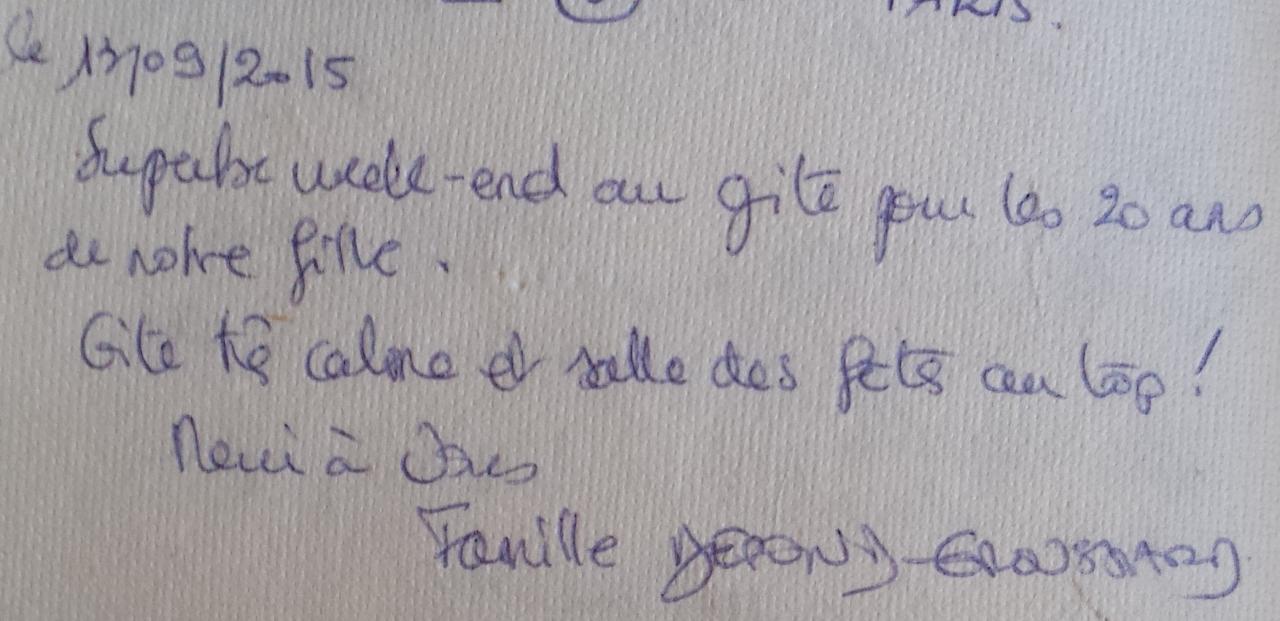 PARIS.
Le 13/09/2015
Superbe week-end au gîte pour les 20 ans
de notre fille.
Gîte très calme et salle des fêtes au top !
Merci à
Famille